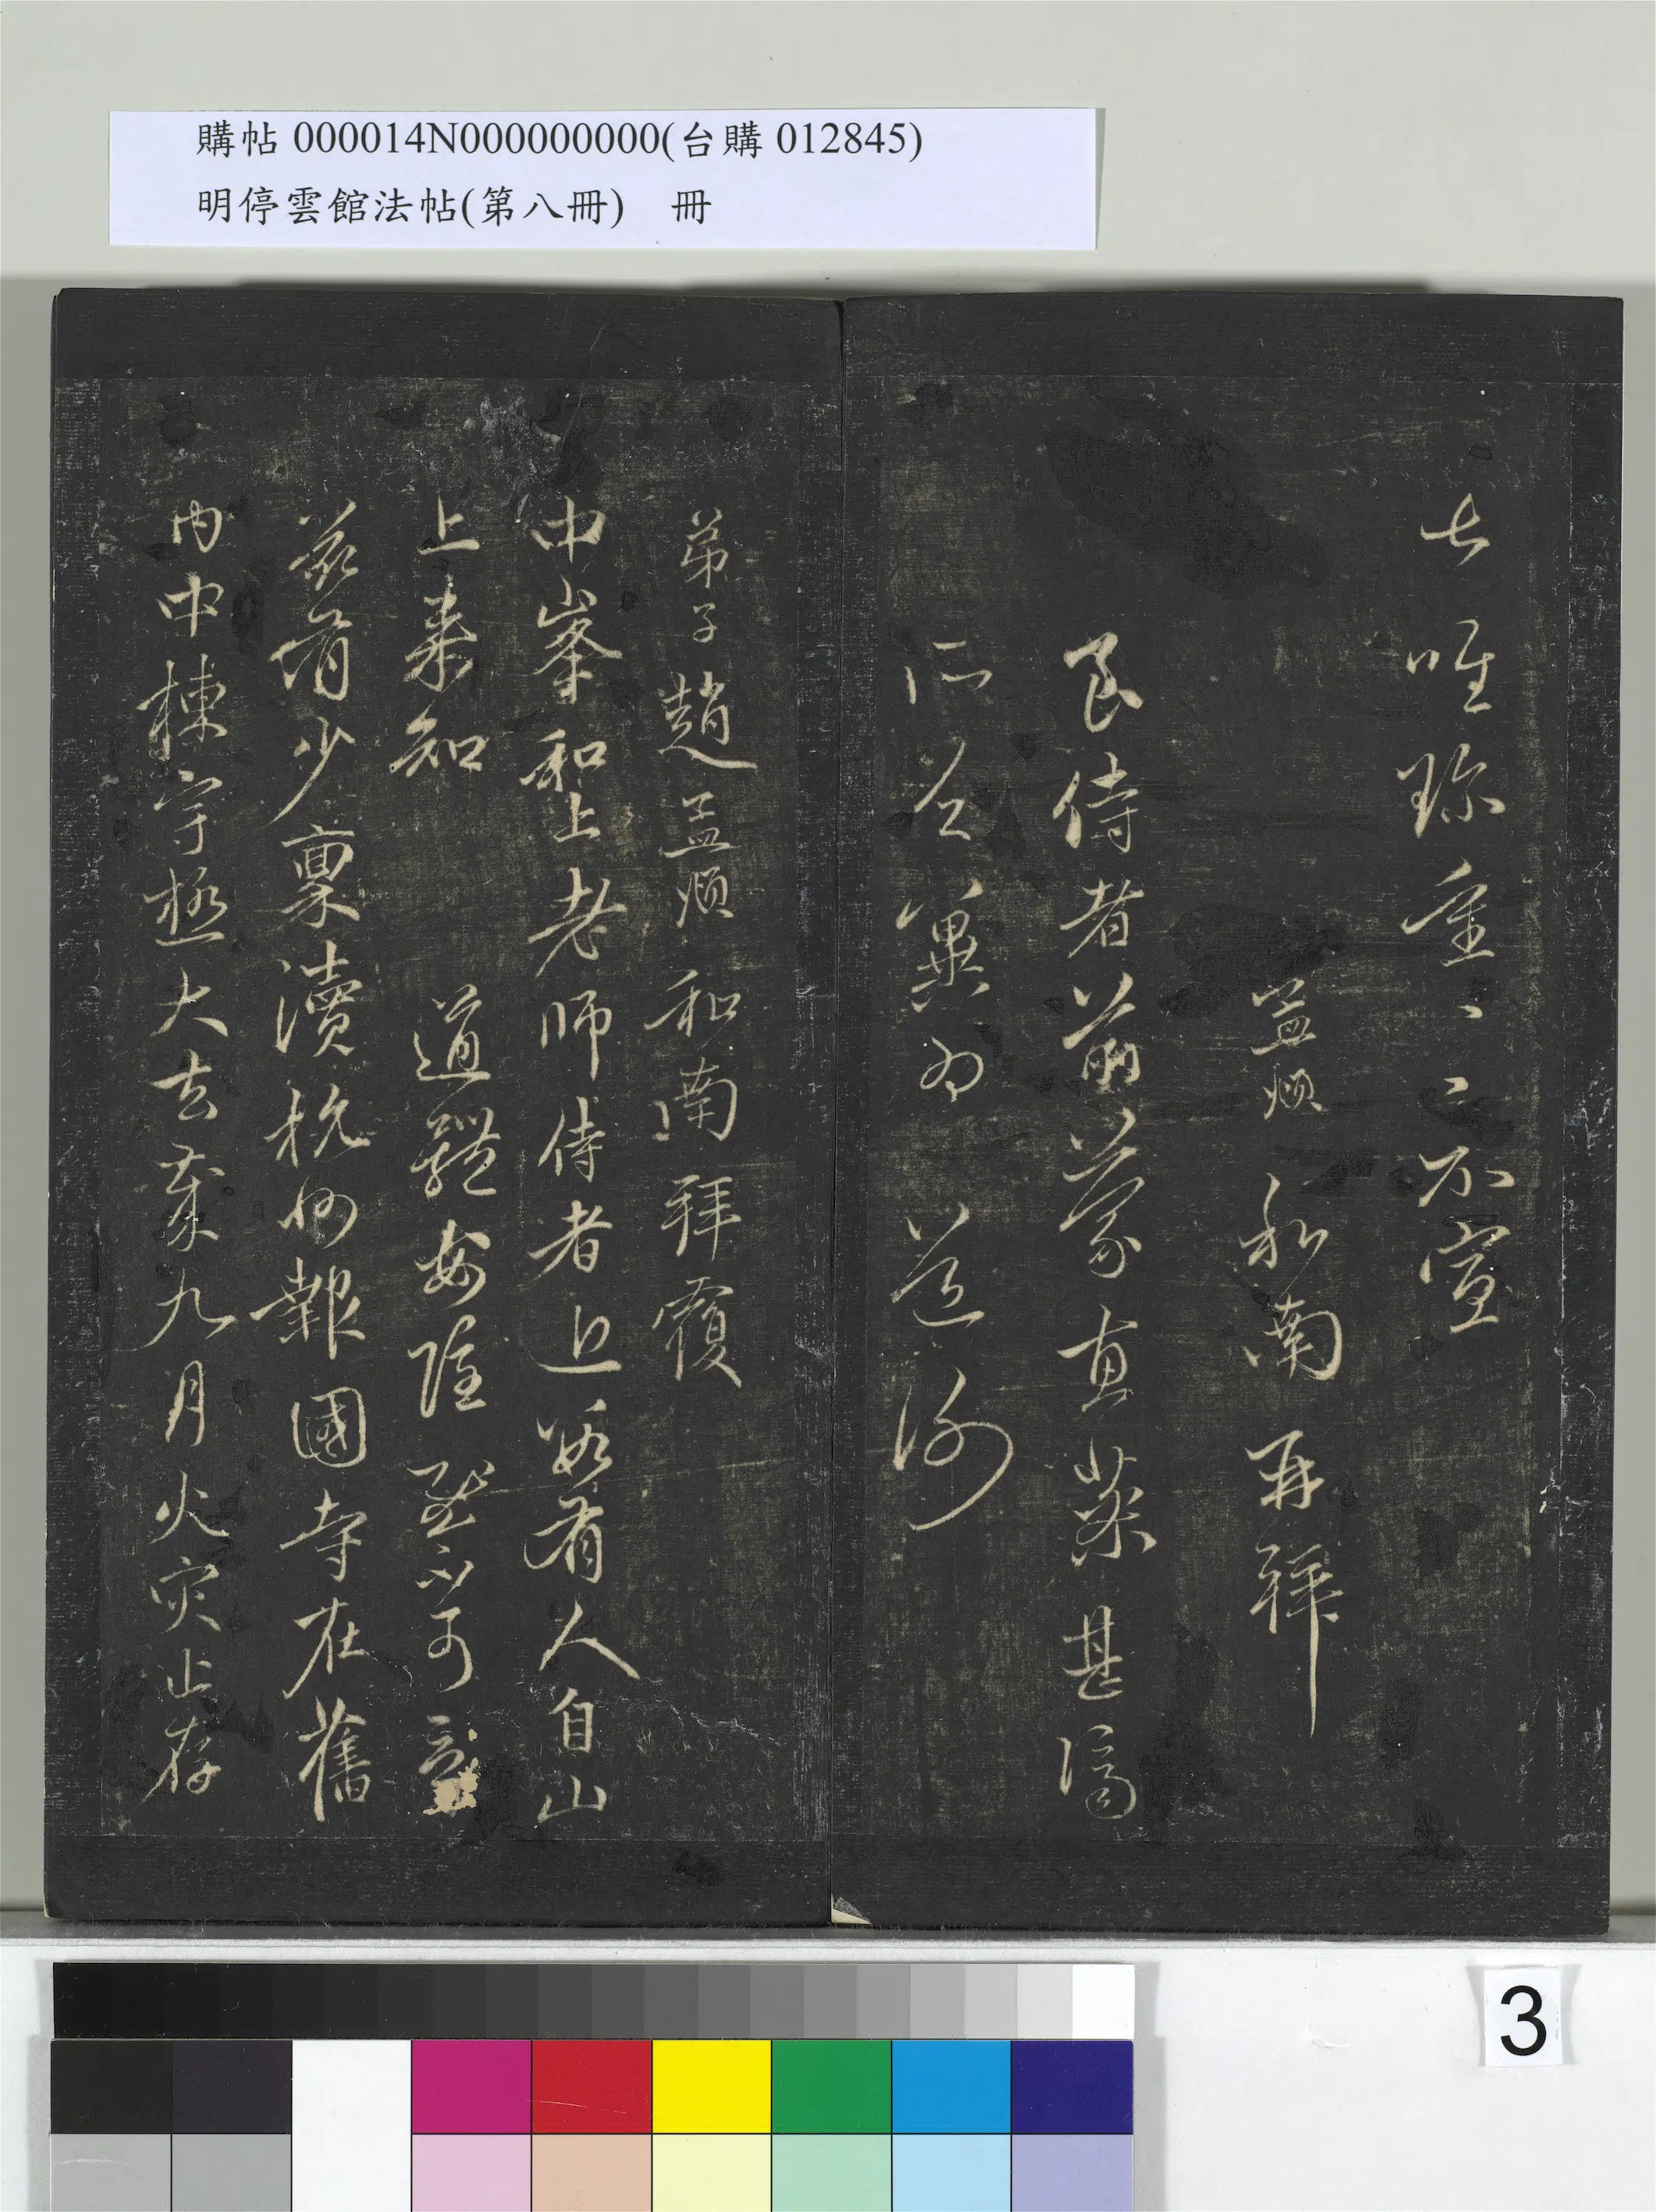 購帖 000014N000000000(台購 012845)
明停雲館法帖(第八冊) 冊
唯珍重〻〻不宣
孟頫和南再拜
良侍者前蒙惠菜甚濟
所乏冀為 道謝
弟子趙孟頫和南拜覆
中峯和上老師侍者近數有人自山
上来知 道體安隱可
茲有少稟瀆杭州報國寺在舊
内中棟宇極大去歲九月火灾止存
3